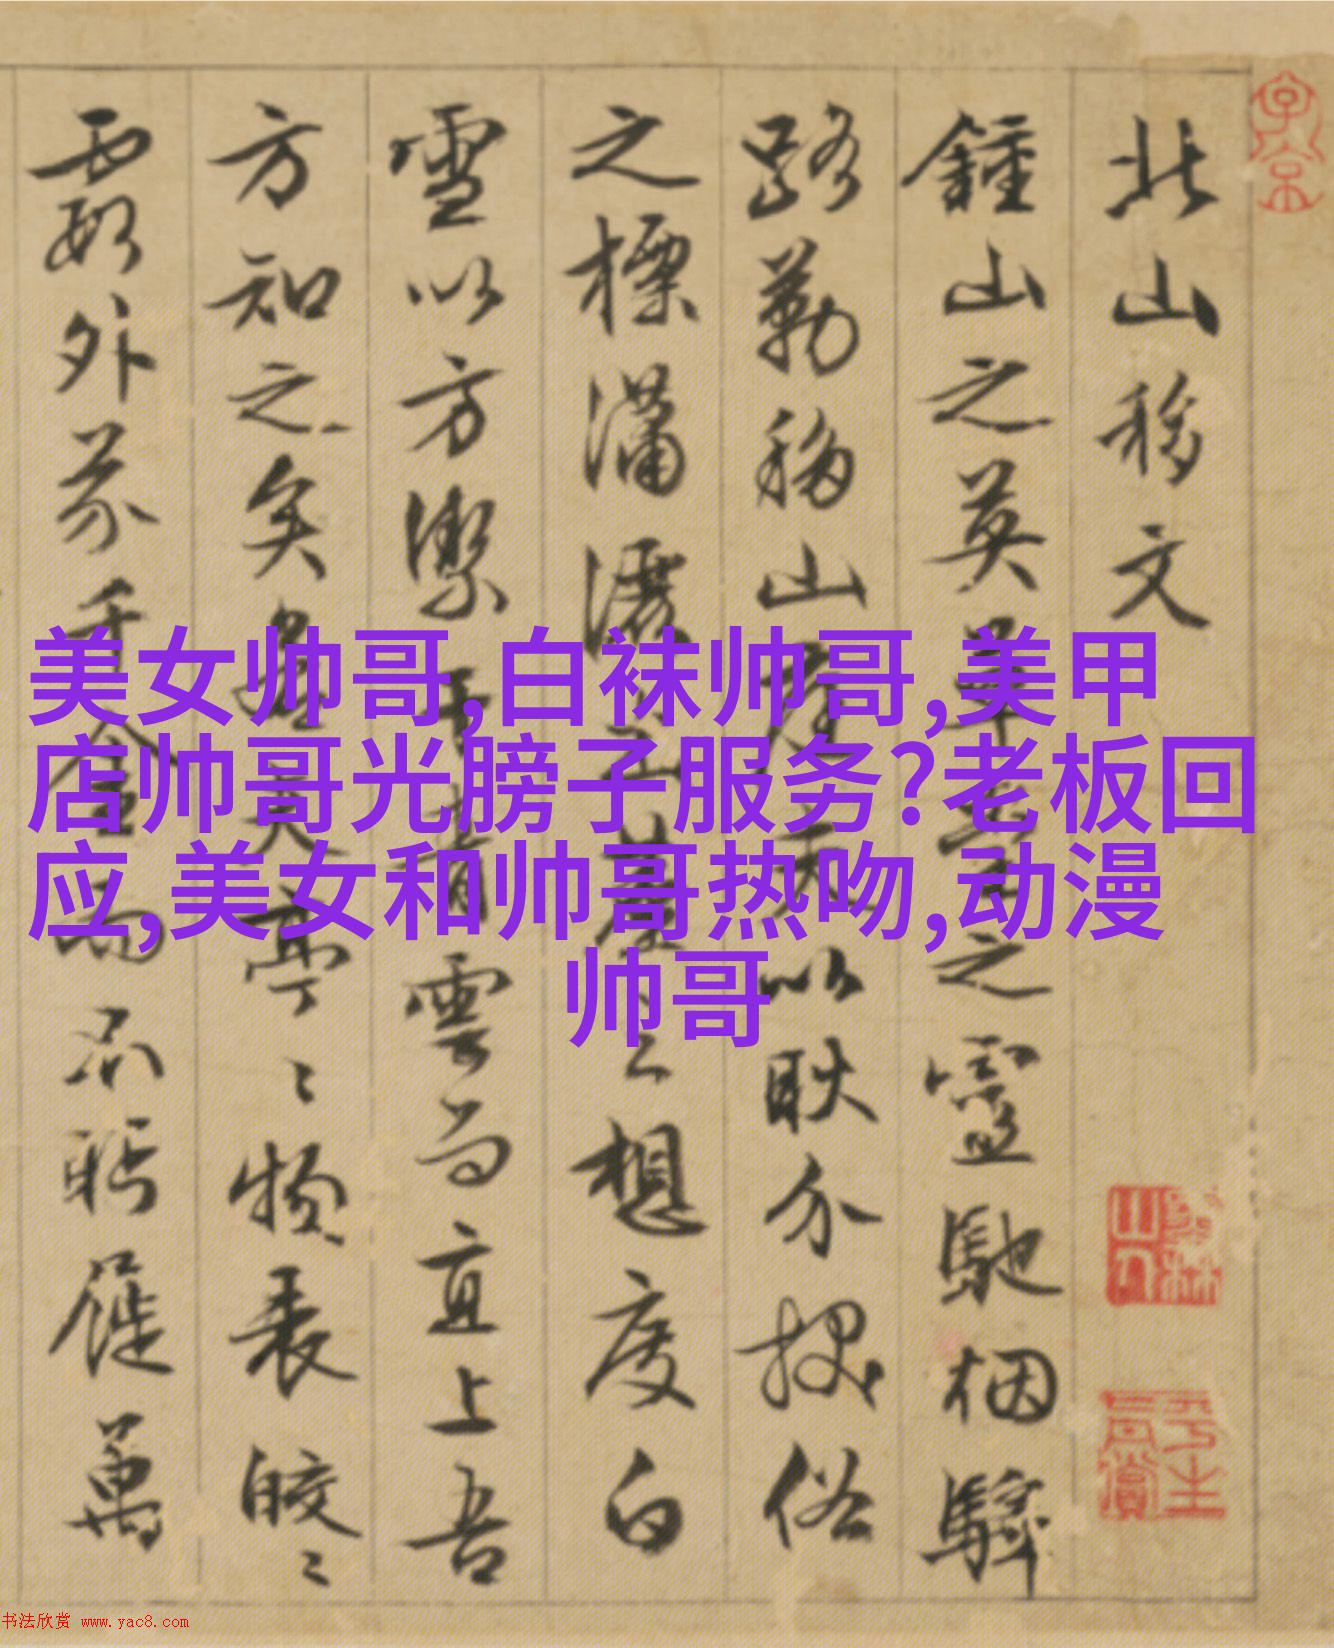 北山移文
鍾山之英草堂之靈馳烟驛
路勒移山庭夫以耿介拔俗
之標瀟灑出塵之想度白
雪以方潔干青雲而直上吾
方知之矣若其亭〻物表皎〻
霞外芥千金而不眄屣萬
美女帅哥,白袜帅哥,美甲
店帅哥光膀子服务?老板回
应,美女和帅哥热吻,动漫
帅哥
书法欣赏 www.yac8.com